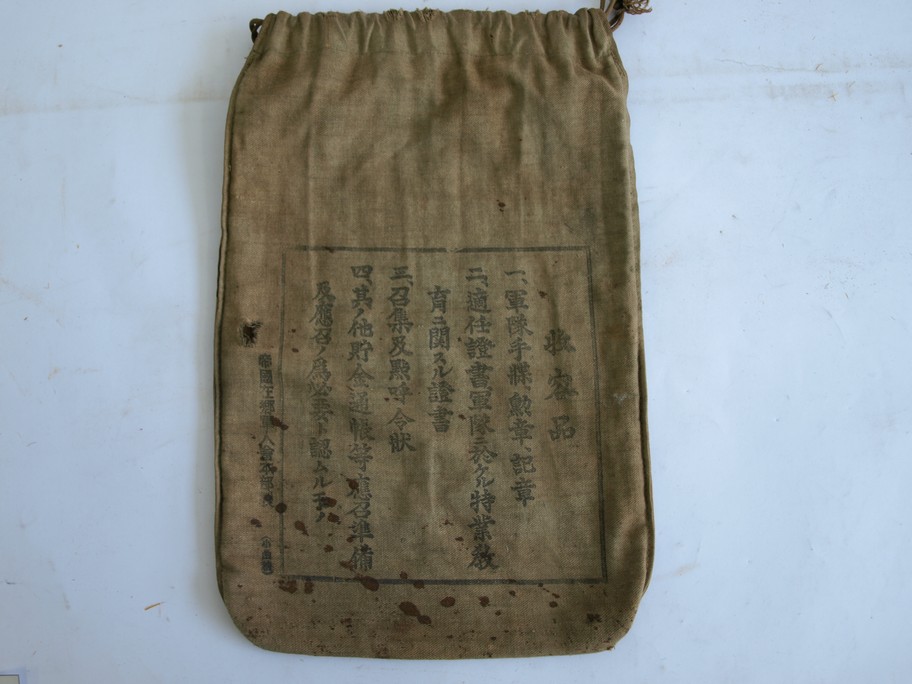 收容品
一、軍隊手牒、勲章、記章
二、適任證書軍隊ニ於ケル特業教
育ニ関スル證書
三、召集及點呼令狀
四、其ノ他貯金通帳等應召準備
及應召ノ爲必要ト認ムルモノ
帝國在郷軍人會本部